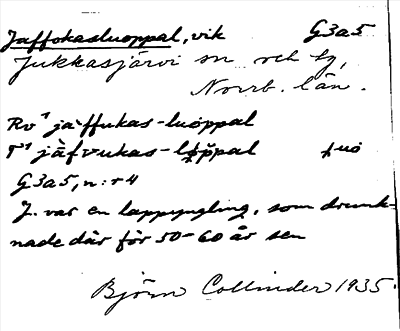 Jaffokasluoppal, vik G3a5
Jukkasjärvi sn och tg,
Norrb. län.
Rv¹ jaffukas-luoppal
T¹ jäfvukas-løppal ɟuo
G3a5, n:r 4
J. var en lappyngling, som drunk-
nade där för 50-60 år sen
Björn Collinder 1935.